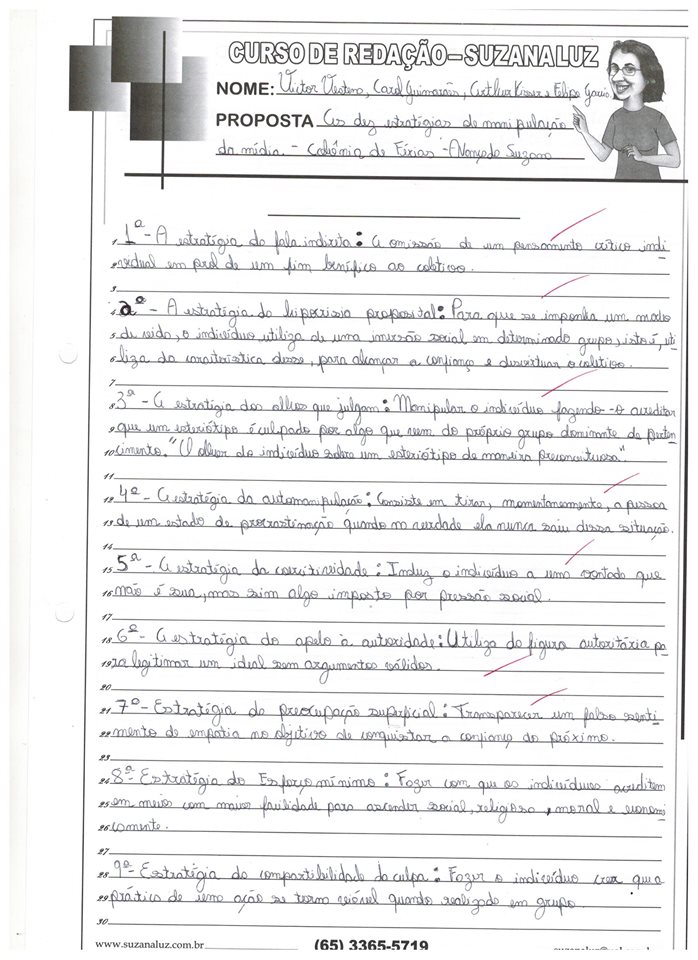 CURSO DE REDAÇÃO–SUZANA LUZ
NOME: Victor Westens, Carol Guimarães, Arthur Kisser e Felipe Garcia
PROPOSTA As dez estratégias de manipulação
da mídia. - Colônia de Férias - Avançado Suzana
1 1ª - A estratégia da fala indireta: A omissão de um pensamento crítico indi-
2 vidual em prol de um fim benéfico ao coletivo.
3
4 2ª - A estratégia da hipocrisia proposital: Para que se imponha um modo
5 de vida, o indivíduo utiliza de uma inversão social em determinado grupo, isto é, uti-
6 liza da característica desse, para alcançar a confiança e desvirtuar o coletivo.
7
8 3ª - A estratégia dos olhos que julgam: Manipular o indivíduo fazendo-o acreditar
9 que um esteriótipo é culpado por algo que vem do próprio grupo dominante de perten-
10 cimento. "O olhar do indivíduo sobre um esteriótipo de maneira preconceituosa".
11
12 4ª - A estratégia da automanipulação: Consiste em tirar, momentaneamente, a pessoa
13 de um estado de procrastinação quando na verdade ela nunca saiu dessa situação.
14
15 5ª - A estratégia da coercitividade: Induz o indivíduo a uma vontade que
16 não é sua, mas sim algo imposto por pressão social.
17
18 6ª - A estratégia do apelo à autoridade: Utiliza da figura autoritária pa-
19 ra legitimar um ideal sem argumentos válidos.
20
21 7ª - Estratégia da preocupação superficial: Transparecer um falso senti-
22 mento de empatia no objetivo de conquistar a confiança do próximo.
23
24 8ª - Estratégia do Esforço mínimo: Fazer com que os indivíduos acreditem
25 em meios com maior facilidade para ascender social, religiosa, moral e economi-
26 camente.
27
28 9ª - Estratégia da compartibilidade da culpa: Fazer o indivíduo crer que a
29 prática de uma ação se torna viável quando realizada em grupo.
30
www.suzanaluz.com.br (65) 3365-5719